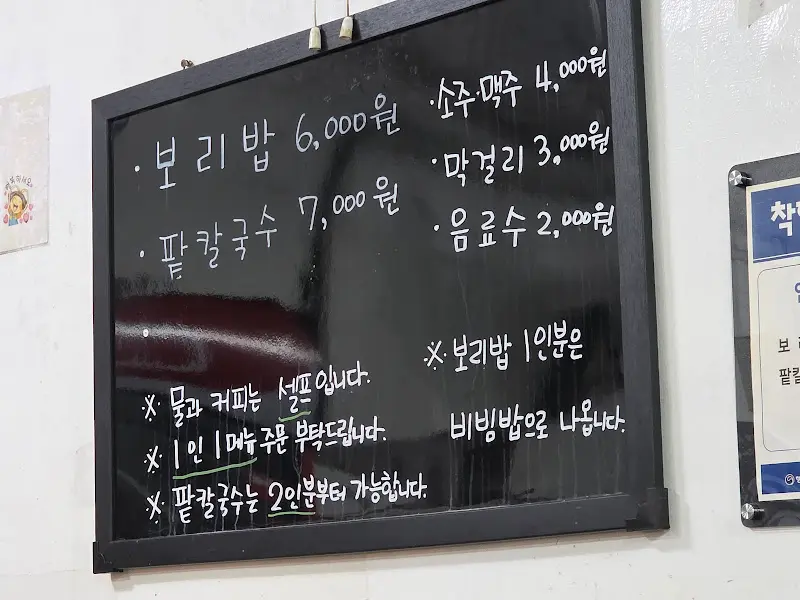 · 보리밥 6,000원
· 팥칼국수 7,000원
· 소주·맥주 4,000원
· 막걸리 3,000원
· 음료수 2,000원
※ 물과 커피는 셀프입니다.
※ 1인 1메뉴 주문 부탁드립니다.
※ 팥칼국수는 2인분부터 가능합니다.
※ 보리밥 1인분은
비빔밥으로 나옵니다.
착
보리
팥칼